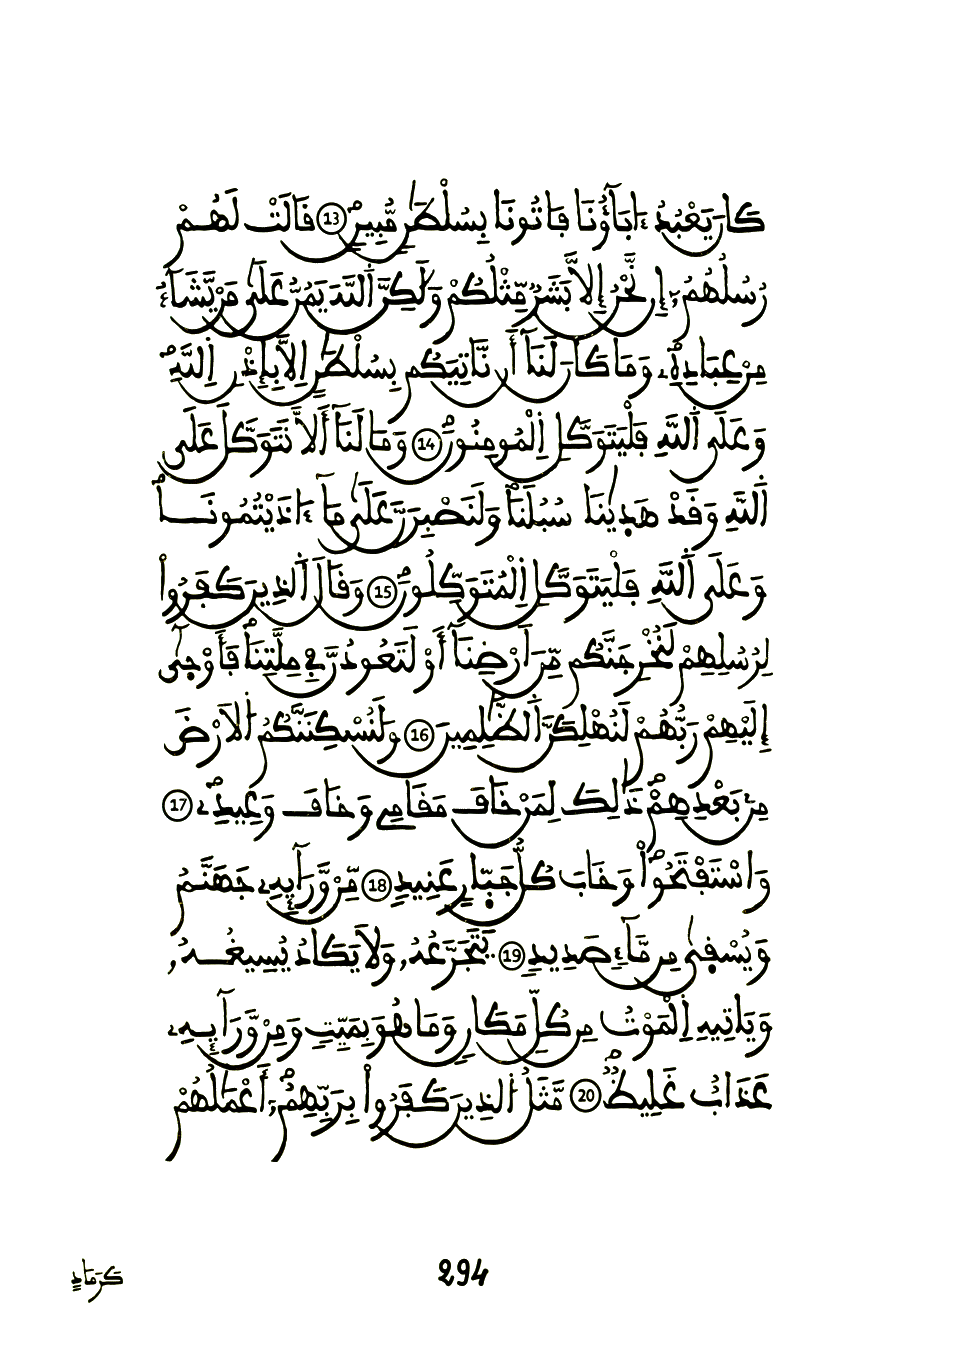 كَانَ يَعْبُدُ ءَابَآؤُنَا فَاتُونَا بِسُلْطَٰنٍ مُّبِينٍ ⑬ قَالَتْ لَهُمْ
رُسُلُهُمُۥٓ إِن نَّحْنُ إِلَّا بَشَرٌ مِّثْلُكُمْ وَلَٰكِنَّ اَ۬للَّهَ يَمُنُّ عَلَىٰ مَنْ يَّشَآءُ
مِنْ عِبَادِهِۦ وَمَا كَانَ لَنَآ أَن نَّاتِيَكُم بِسُلْطَٰنٍ اِلَّا بِإِذْنِ اِ۬للَّهِ
وَعَلَى اَ۬للَّهِ فَلْيَتَوَكَّلِ اِ۬لْمُومِنُونَ ⑭ وَمَا لَنَآ أَلَّا نَتَوَكَّلَ عَلَى
اَ۬للَّهِ وَقَدْ هَدَىٰنَا سُبُلَنَا وَلَنَصْبِرَنَّ عَلَىٰ مَآ ءَاذَيْتُمُونَا
وَعَلَى اَ۬للَّهِ فَلْيَتَوَكَّلِ اِ۬لْمُتَوَكِّلُونَ ⑮ وَقَالَ اَ۬لذِينَ كَفَرُواْ
لِرُسُلِهِمْ لَنُخْرِجَنَّكُم مِّنَ اَرْضِنَآ أَوْ لَتَعُودُنَّ فِي مِلَّتِنَا فَأَوْحَىٰٓ
إِلَيْهِمْ رَبُّهُمْ لَنُهْلِكَنَّ اَ۬لظَّٰلِمِينَ ⑯ وَلَنُسْكِنَنَّكُمُ اُ۬لَارْضَ
مِنۢ بَعْدِهِمْ ذَٰلِكَ لِمَنْ خَافَ مَقَامِي وَخَافَ وَعِيدِۦ ⑰
وَاسْتَفْتَحُواْ وَخَابَ كُلُّ جَبّ۪ارٍ عَنِيدٍ ⑱ مِّنْ وَّرَآئِهِۦ جَهَنَّمُ
وَيُسْقَىٰ مِن مَّآءٍ صَدِيدٍ ⑲ يَتَجَرَّعُهُۥ وَلَا يَكَادُ يُسِيغُهُۥ
وَيَاتِيهِ اِ۬لْمَوْتُ مِن كُلِّ مَكَانٍ وَمَا هُوَ بِمَيِّتٍ وَمِنْ وَّرَآئِهِۦ
عَذَابٌ غَلِيظٌ ⑳ مَّثَلُ اُ۬لذِينَ كَفَرُواْ بِرَبِّهِمُۥٓ أَعْمَٰلُهُمْ
294